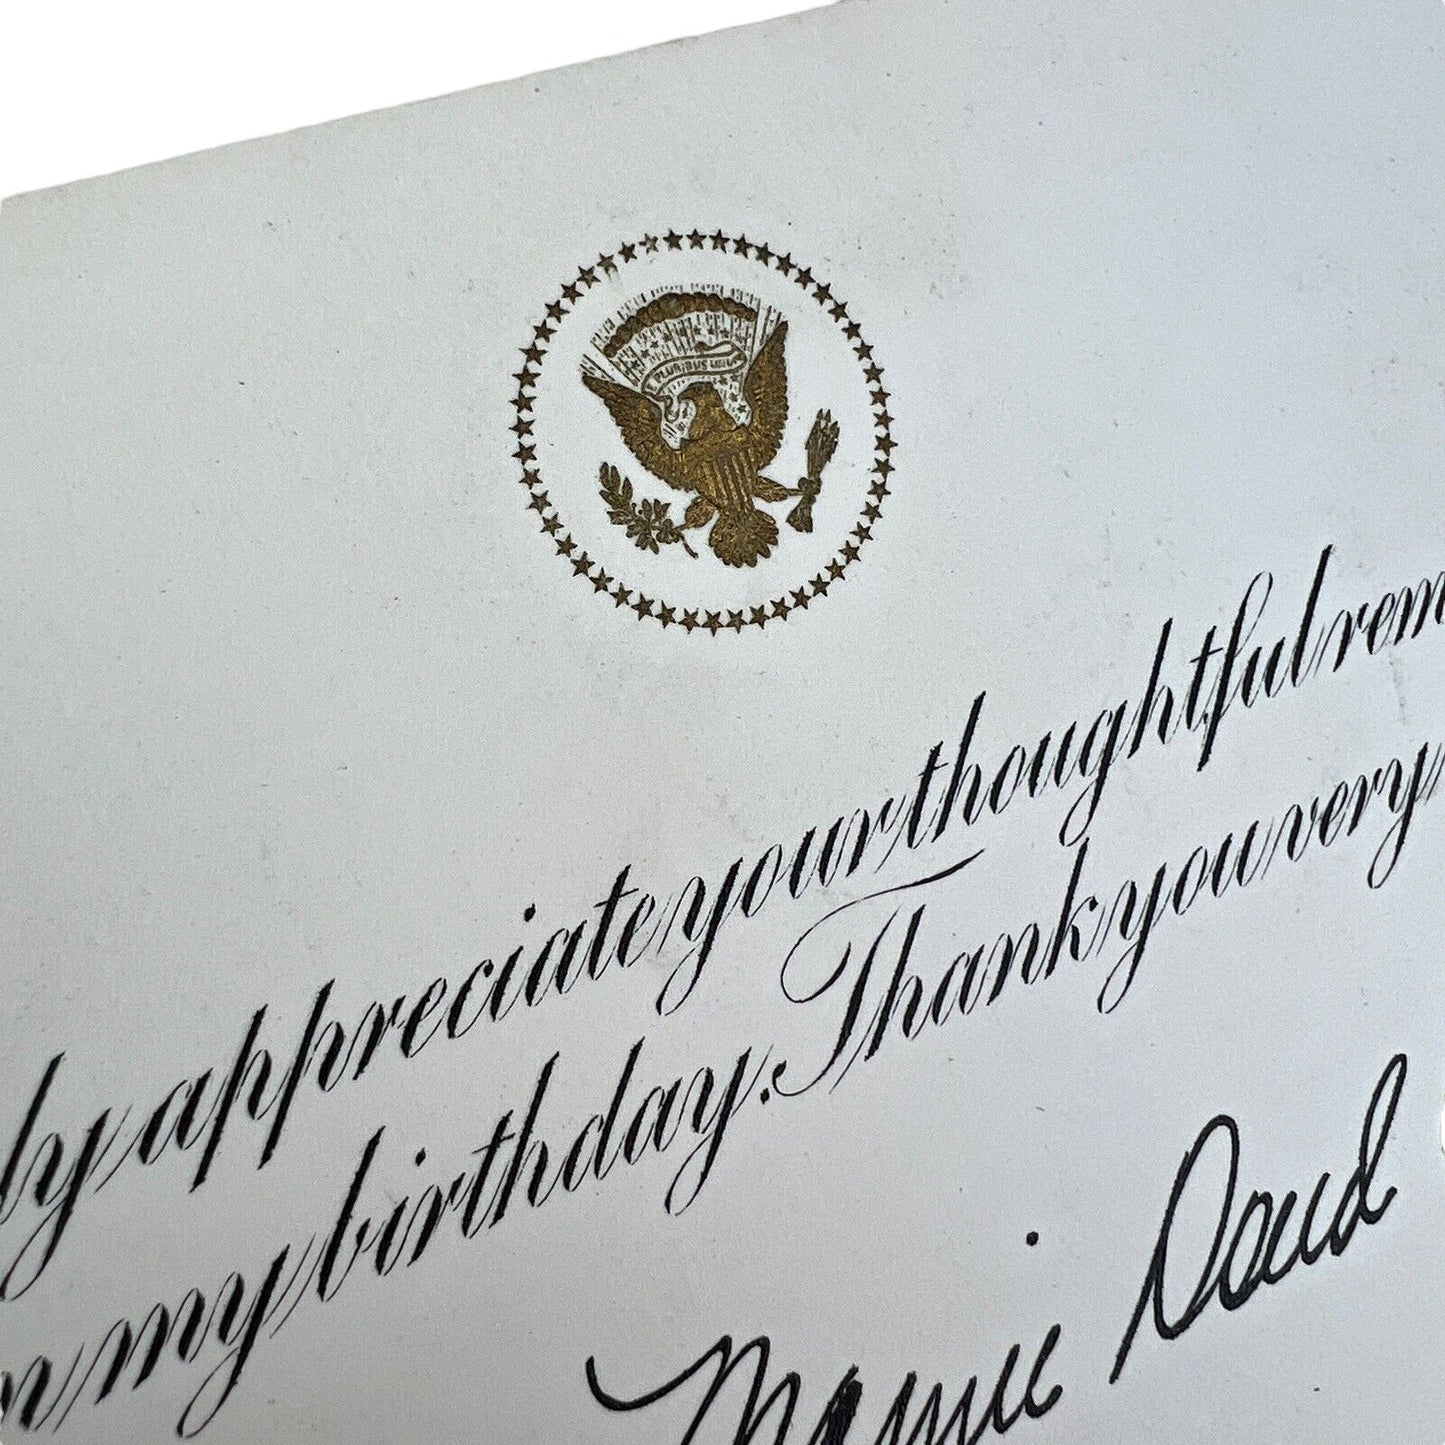 E PLURIBUS UNUM
ly appreciate your thoughtful rem
on my birthday. Thank you very
Mamie Doud